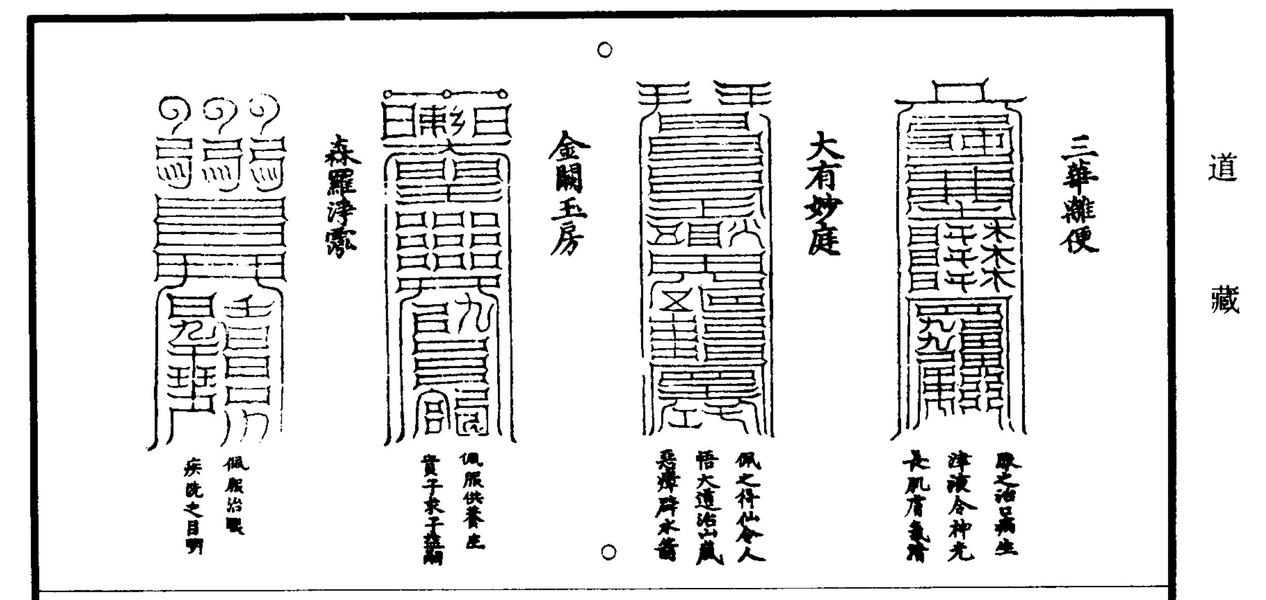 道藏
三華離便
服之治百病生
津液令神光
長肌膚氣清
大有妙庭
佩之得仙令人
悟大道治山嵐
惡瘴辟水
金闕玉房
佩服供養生
貴子求子
森羅淨
佩服治眼
疾洗之目明